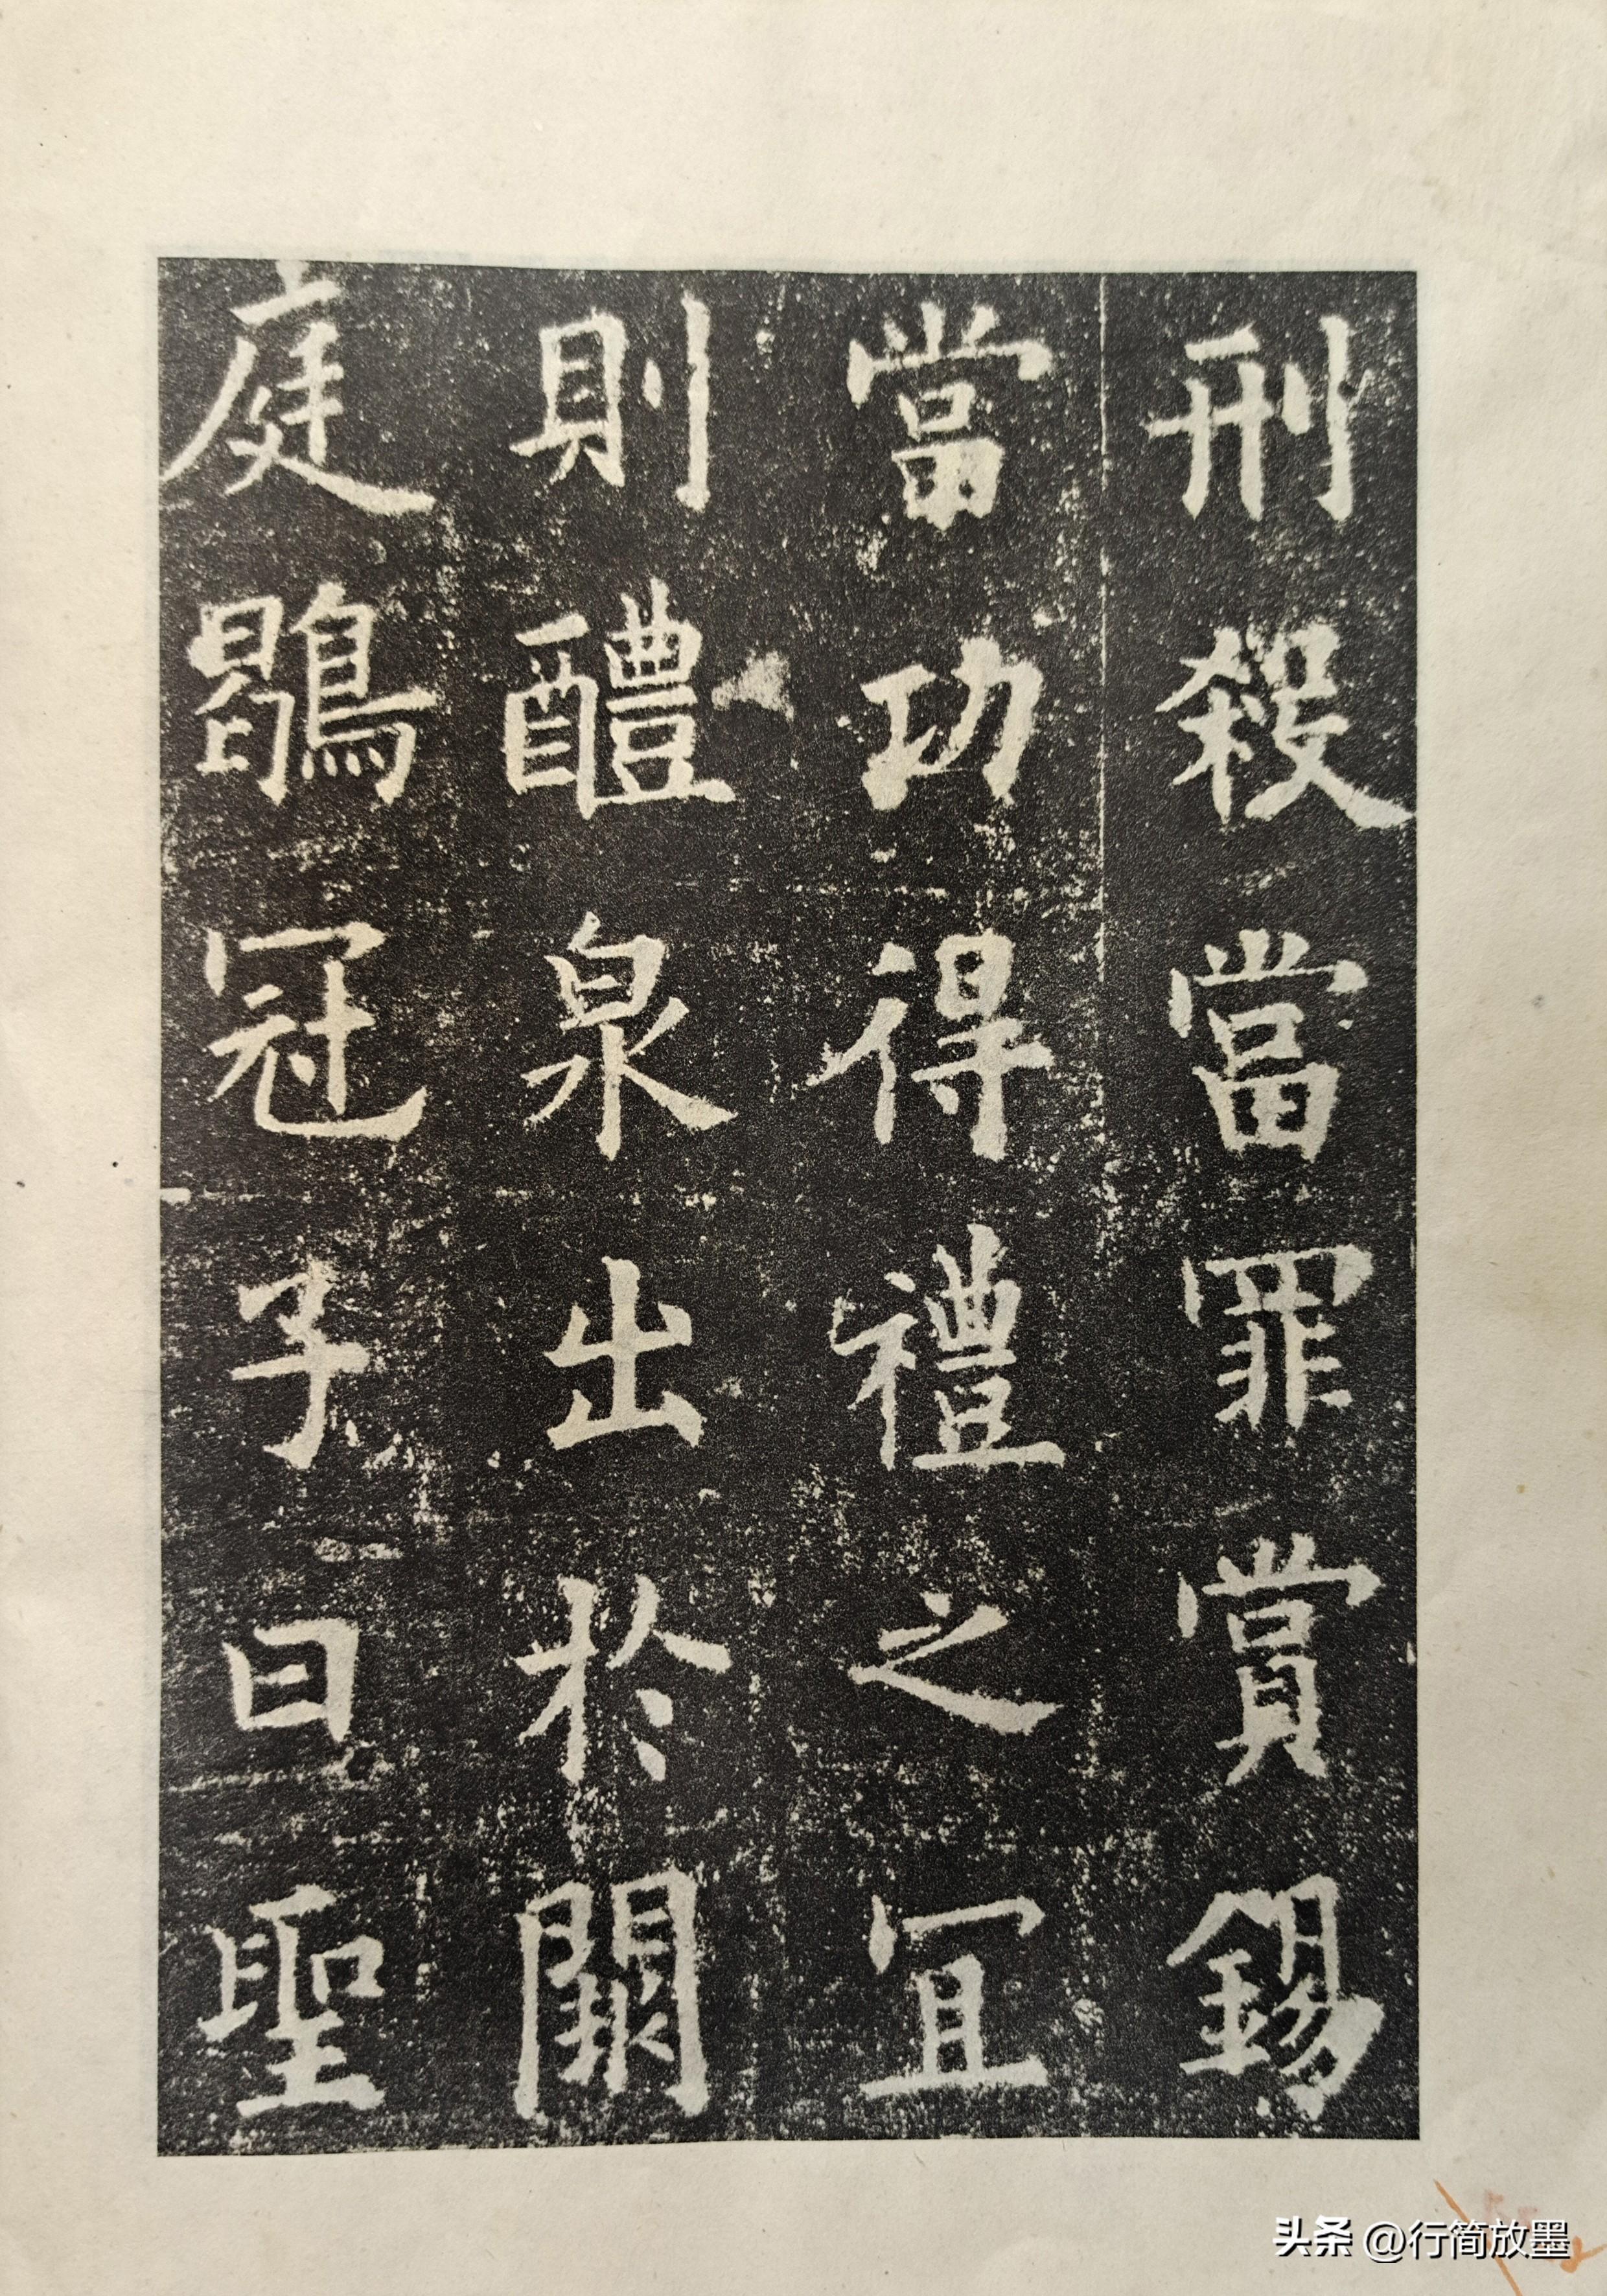 刑殺當罪賞錫
當功得禮之宜
則醴泉出於闕
庭鶡冠子曰聖
头条 @行简放墨